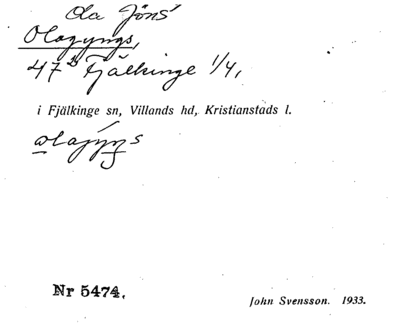 Ola Jöns'
Olagyngs,
47 b Fjälkinge 1/4,
i Fjälkinge sn, Villands hd, Kristianstads l.
Nr 5474.
John Svensson. 1933.